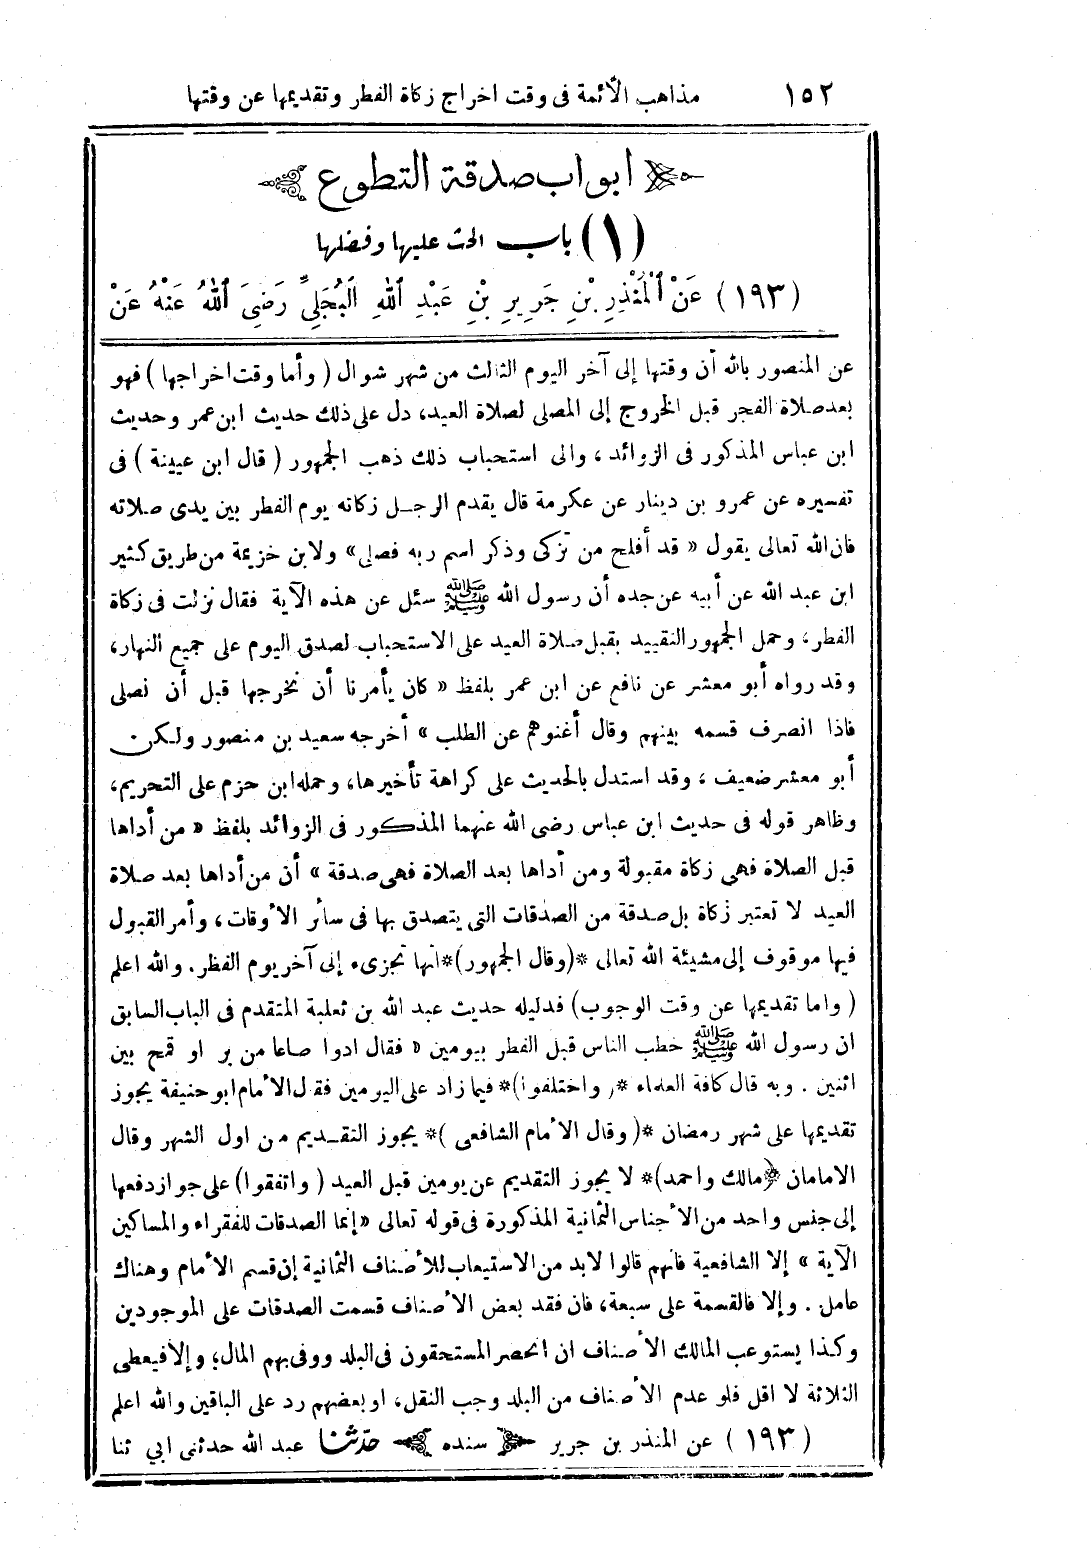 ١٥٢ مذاهب الأئمة فى وقت اخراج زكاة الفطر وتقديمها عن وقتها
ابواب صدقة التطوع
(١) باب الحث عليها وفضلها
(١٩٣) عَنْ ٱلْمُنْذِرِ بْنِ جَرِيرِ بْنِ عَبْدِ ٱللهِ ٱلْبَجَلِيِّ رَضِيَ ٱللهُ عَنْهُ عَنْ
عن المنصور بالله أن وقتها إلى آخر اليوم الثالث من شهر شوال ( وأما وقت اخراجها ) فهو
بعد صلاة الفجر قبل الخروج إلى المصلى لصلاة العيد، دل على ذلك حديث ابن عمر وحديث
ابن عباس المذكور فى الزوائد ، والى استحباب ذلك ذهب الجمهور ( قال ابن عيينة ) فى
تفسيره عن عمرو بن دينار عن عكرمة قال يقدم الرجل زكاته يوم الفطر بين يدى صلاته
فان الله تعالى يقول « قد أفلح من تزكى وذكر اسم ربه فصلى» ولابن خزيمة من طريق كثير
ابن عبد الله عن أبيه عن جده أن رسول الله ﷺ سئل عن هذه الآية فقال نزلت فى زكاة
الفطر، وحمل الجمهور التقييد بقبل صلاة العيد على الاستحباب لصدق اليوم على جميع النهار،
وقد رواه أبو معشر عن نافع عن ابن عمر بلفظ « كان يأمرنا أن نخرجها قبل أن نصلى
فاذا انصرف قسمه بينهم وقال أغنوهم عن الطلب » أخرجه سعيد بن منصور ولكن
أبو معشر ضعيف ، وقد استدل بالحديث على كراهة تأخيرها، وحمله ابن حزم على التحريم،
وظاهر قوله فى حديث ابن عباس رضى الله عنهما المذكور فى الزوائد بلفظ « من أداها
قبل الصلاة فهى زكاة مقبولة ومن أداها بعد الصلاة فهى صدقة » أن من أداها بعد صلاة
العيد لا تعتبر زكاة بل صدقة من الصدقات التى يتصدق بها فى سائر الأوقات ، وأمر القبول
فيها موقوف إلى مشيئة الله تعالى *(وقال الجمهور)* انها تجزىء إلى آخر يوم الفطر. والله اعلم
( واما تقديمها عن وقت الوجوب) فدليله حديث عبد الله بن ثعلبة المتقدم فى الباب السابق
ان رسول الله ﷺ خطب الناس قبل الفطر بيومين « فقال ادوا صاعا من بر او قمح بين
اثنين . وبه قال كافة العلماء *( واختلفوا)* فيما زاد على اليومين فقال الأمام ابو حنيفة يجوز
تقديمها على شهر رمضان *( وقال الأمام الشافعى )* يجوز التقديم من اول الشهر وقال
الامامان *(مالك واحمد)* لا يجوز التقديم عن يومين قبل العيد ( واتفقوا) على جواز دفعها
إلى جنس واحد من الأجناس الثمانية المذكورة فى قوله تعالى «إنما الصدقات للفقراء والمساكين
الآية » إلا الشافعية فأنهم قالوا لابد من الاستيعاب للأصناف الثمانية إن قسم الأمام وهناك
عامل . وإلا فالقسمة على سبعة، فان فقد بعض الأصناف قسمت الصدقات على الموجودين
وكذا يستوعب المالك الأصناف ان انحصر المستحقون فى البلد ووفى بهم المال؛ وإلا فيعطى
الثلاثة لا اقل فلو عدم الأصناف من البلد وجب النقل، او بعضهم رد على الباقين والله اعلم
(١٩٣) عن المنذر بن جرير سنده حدثنا عبد الله حدثنى ابى ثنا